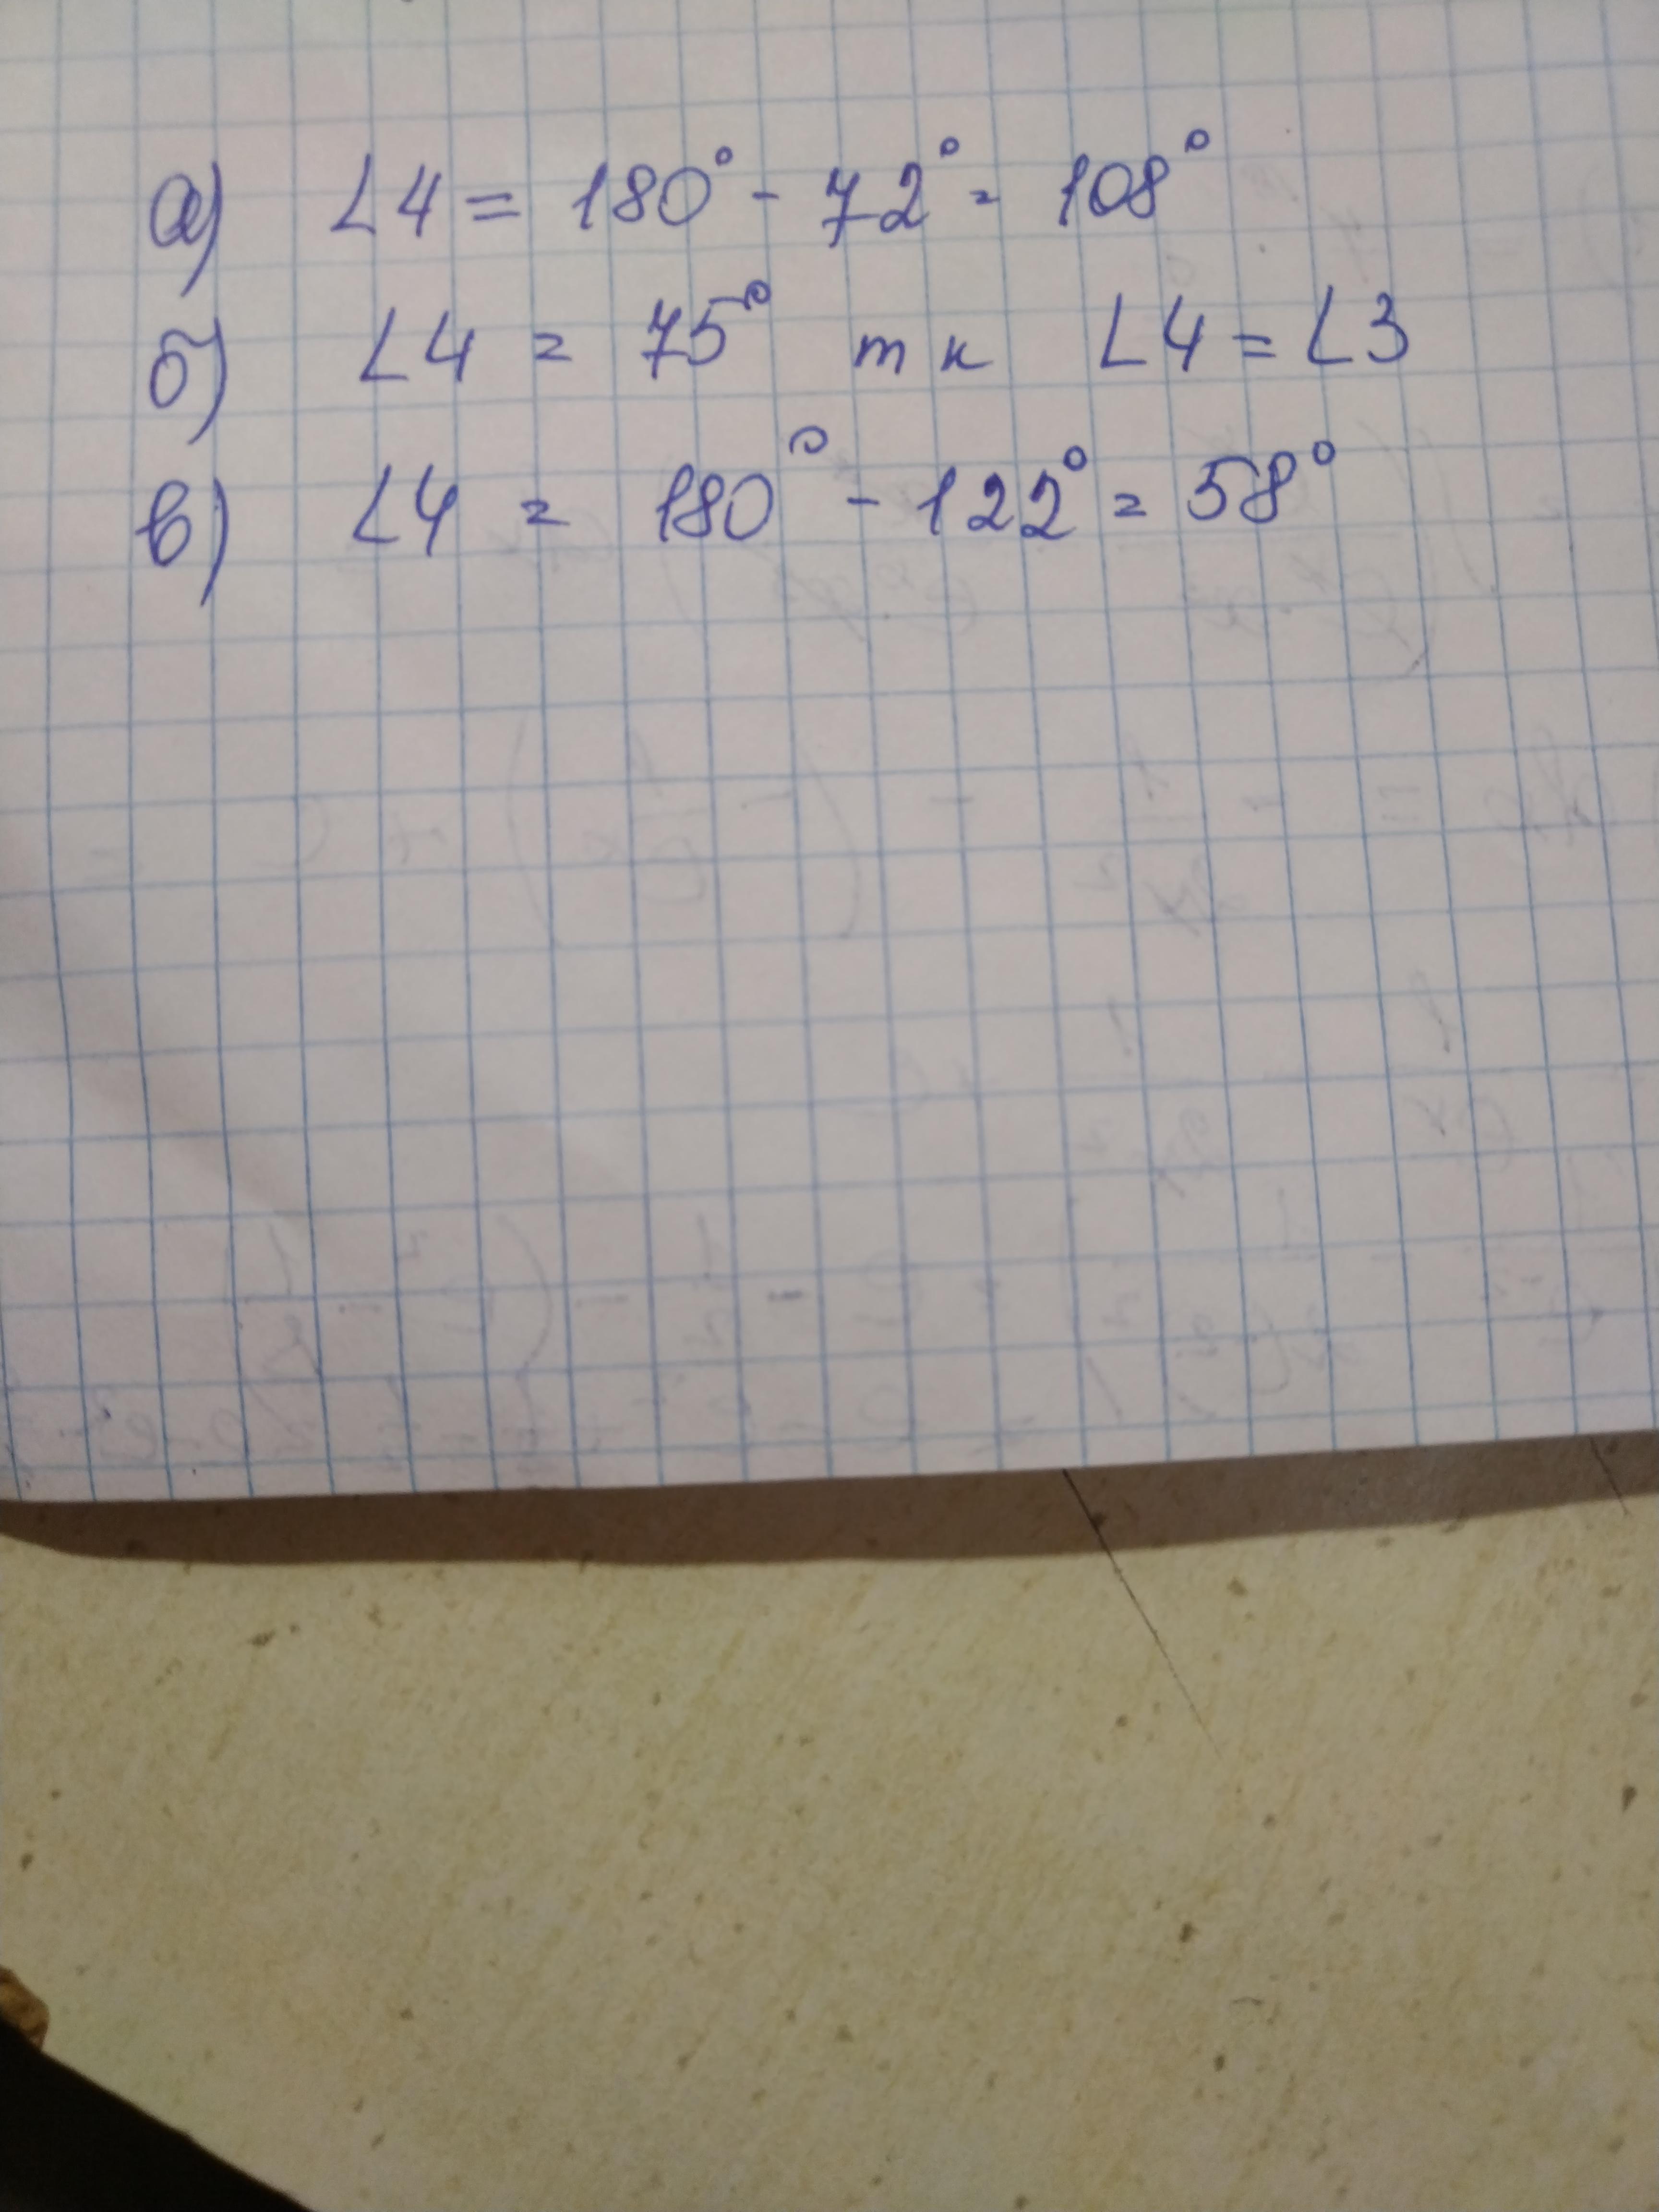 а) ∠4 = 180° - 72° = 108°
б) ∠4 = 75° т к ∠4 = ∠3
в) ∠4 = 180° - 122° = 58°